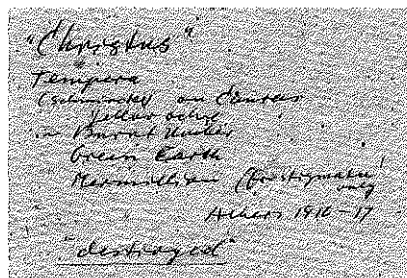 "Christus"
Tempera
(Schmincke) on Canvas
Yellow ochre
Burnt Umber
Green Earth
Vermillion (for stigmata only)
Athens 1916-17
"destroyed"